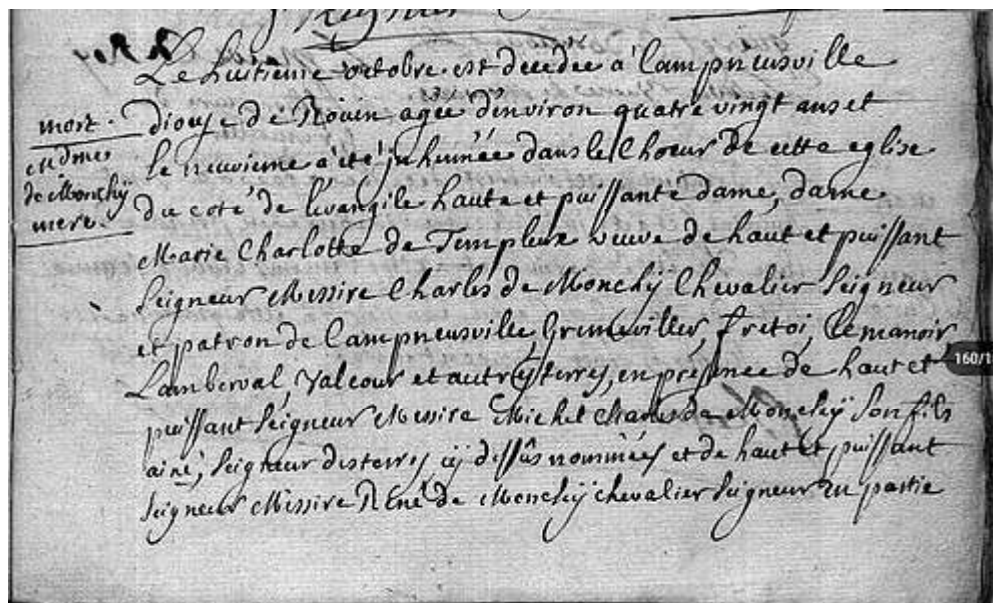 Le huitieme octobre est decedée à Campneusville
mort.
diocese de Roüen agée d'environ quatre vingt ans et
de mde
de Monchÿ
mere.
le neuvieme a été inhumée dans le Choeur de cette eglise
du coté de l'évangile haute et puissante dame, dame
Marie Charlotte de Templeux veuve de haut et puissant
Seigneur Messire Charles de Monchÿ Chevalier Seigneur
et patron de Campneusville, Grémeviller, fretoi, le manoir
Lamberval, Valcour et autres terres, en présence de haut et
160/1
puissant Seigneur Messire Michel Charles de Monchÿ son fils
ainé, Seigneur des terres cÿ dessûs nommées et de haut et puissant
Seigneur Messire René de Monchÿ chevalier Seigneur en partie